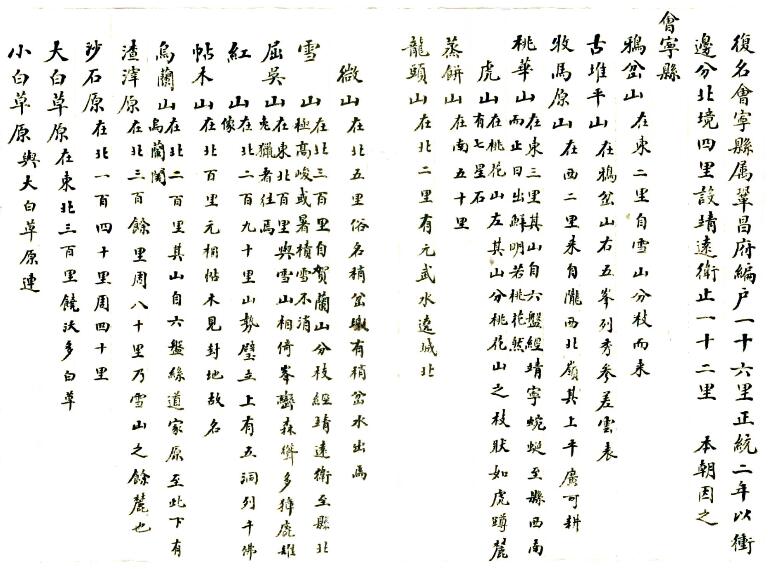 復名會寧縣属鞏昌府編户一十六里正統二年以衝
邊分北境四里設靖遠衛止一十二里　本朝因之
會寧縣
鴉岔山在東二里自雪山分枝而来
古堆平山在鴉岔山右五峯列秀參差雲表
牧馬原山在西二里来自隴西北嶺其上平廣可耕
桃華山在東三里其山自六盤經靖寧蜿蜒至縣西南
而止日出鮮明若桃花然
虎山在桃花山左其山分桃花山之枝狀如虎蹲麓
有七星石
蒸餅山在南五十里
龍頭山在北二里有元武水遶城北
微山在北五里俗名稍岔有稍岔水出焉
雪山在北三百里自賀蘭山分枝經靖遠衛至縣北
極高峻或暑積雪不消
屈吳山在東北百里與雪山相倚峯巒森聳多獐鹿雄
老獵者往焉
紅山在北二百九十里山勢壁立上有五洞列千佛
像
帖木山在北百里元桐帖木見封地故名
烏蘭山在北二百里其山自六盤絲道家原至此下有
烏蘭関
渣滓原在北三百餘里周八十里乃雪山之餘麓也
沙石原在北一百四十里周四十里
大白草原在東北三百里饒沃多白草
小白草原與大白草原連